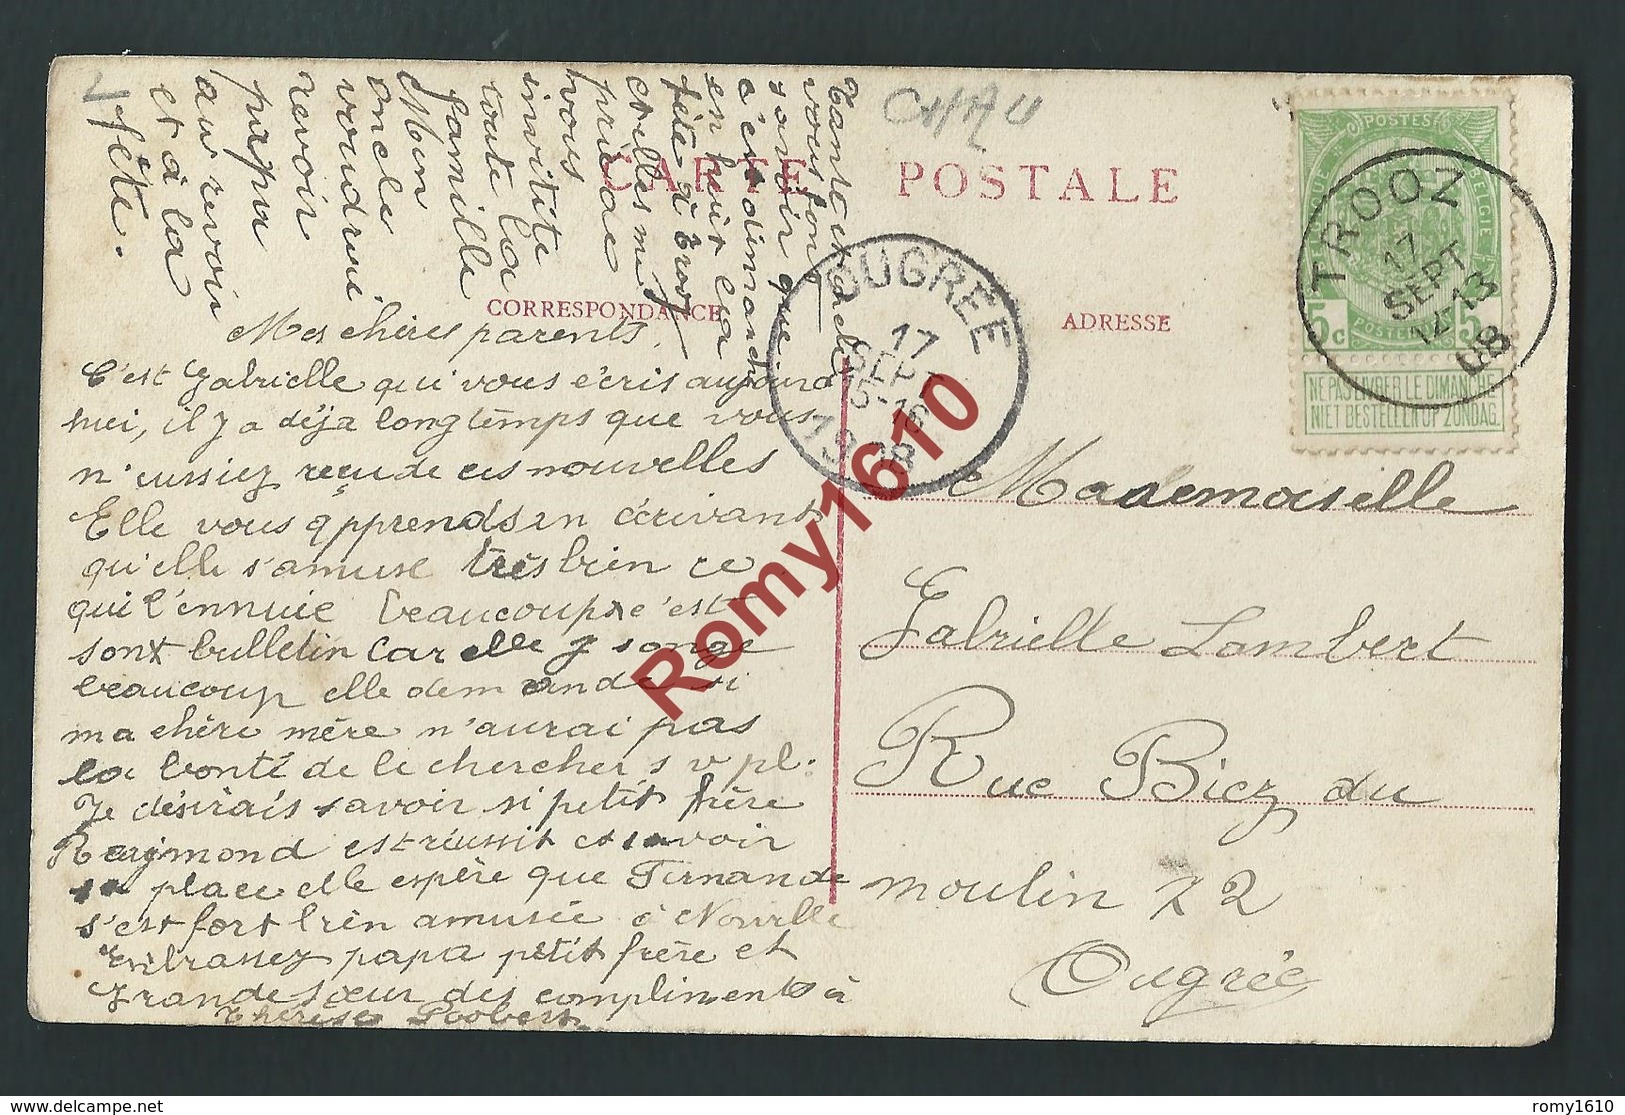 CARTE POSTALE
CORRESPONDANCE
ADRESSE
Mes chères parents.
C'est Gabrielle qui vous écris aujourd
hui, il y a déja longtemps que vous
n'eussiez reçu de ces nouvelles
Elle vous apprends en écrivant
qu'elle s'amuse très bien ce
qui l'ennuie beaucoup c'est
sont bulletin car elle y songe
beaucoup elle demande si
ma chère mère n'aurai pas
la bonté de le chercher s v pl.
Je désirais savoir si petit frère
Raymond est réussit et savoir
sa place elle espère que Fernande
s'est fort bien amusée à
Embrassez papa petit frère et
Grande sœur des compliments à
Thérèse
Tante et
vous font
savoir que
c'est dimanche
en huit la
fête à Trooz
et elles me
prie de
vous
invitée
toute la
famille
Mon
oncle
voudrai
revoir
papa
au revoir
et à la
fête.
OUGREE
17
SEPT
15-16
1908
POSTES
BELGIQUE
BELGIE
POSTERIJEN
5c 5c
NE PAS LIVRER LE DIMANCHE
NIET BESTELLEN OP ZONDAG
TROOZ
17
SEPT
12-13
08
Mademoiselle
Gabrielle Lambert
Rue Biez du
moulin 22
Ougrée
Romy1610
delcampe.net
romy1610